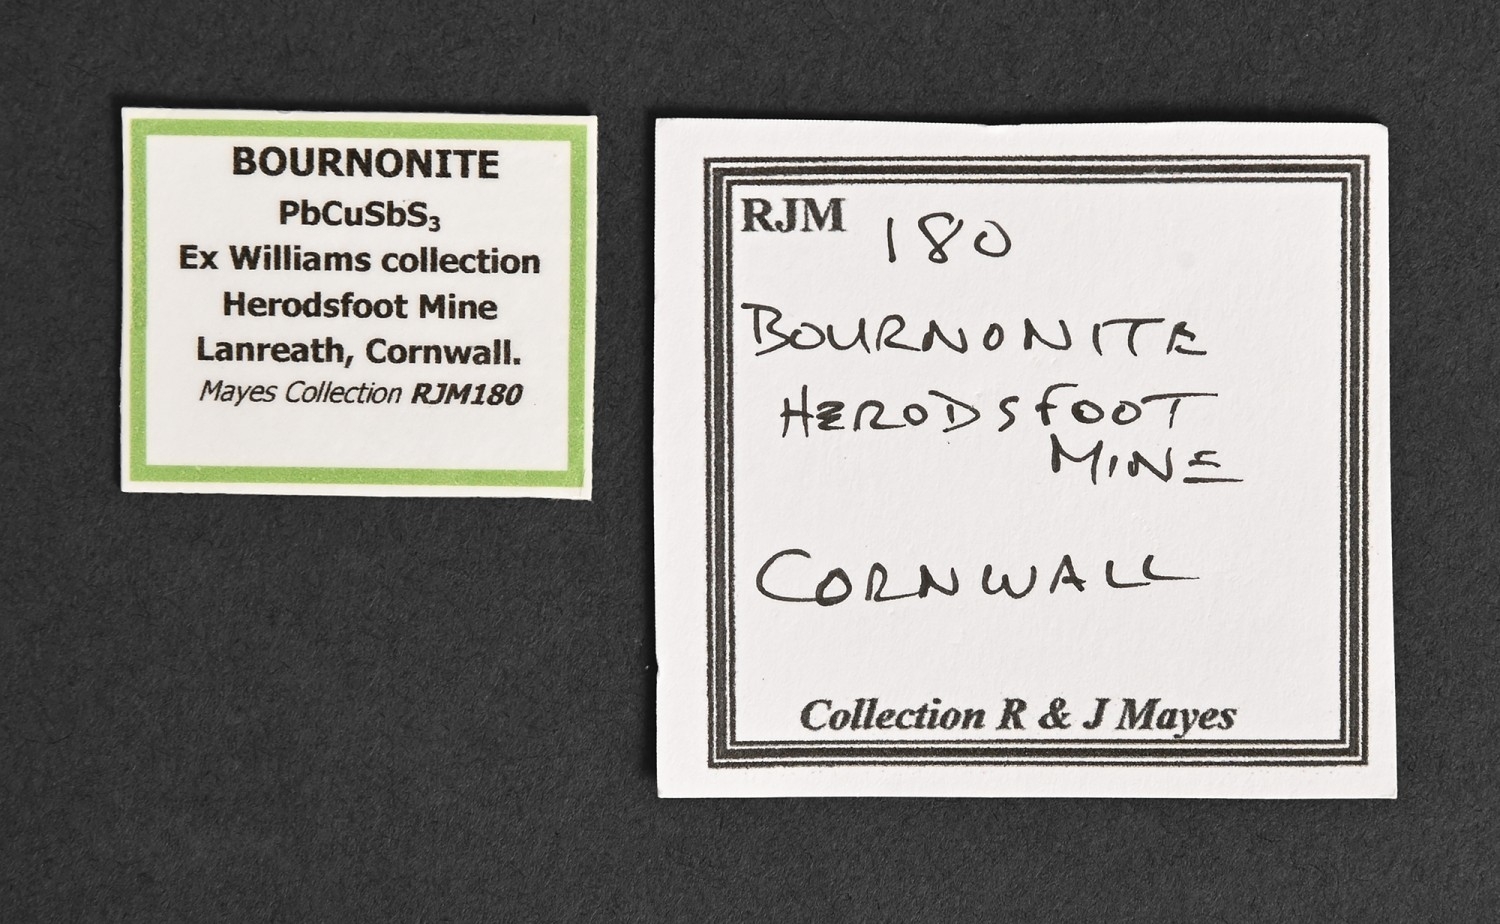 BOURNONITE
PbCuSbS₃
Ex Williams collection
Herodsfoot Mine
Lanreath, Cornwall.
Mayes Collection RJM180
RJM 180
BOURNONITE
HERODSFOOT
MINE
CORNWALL
Collection R & J Mayes